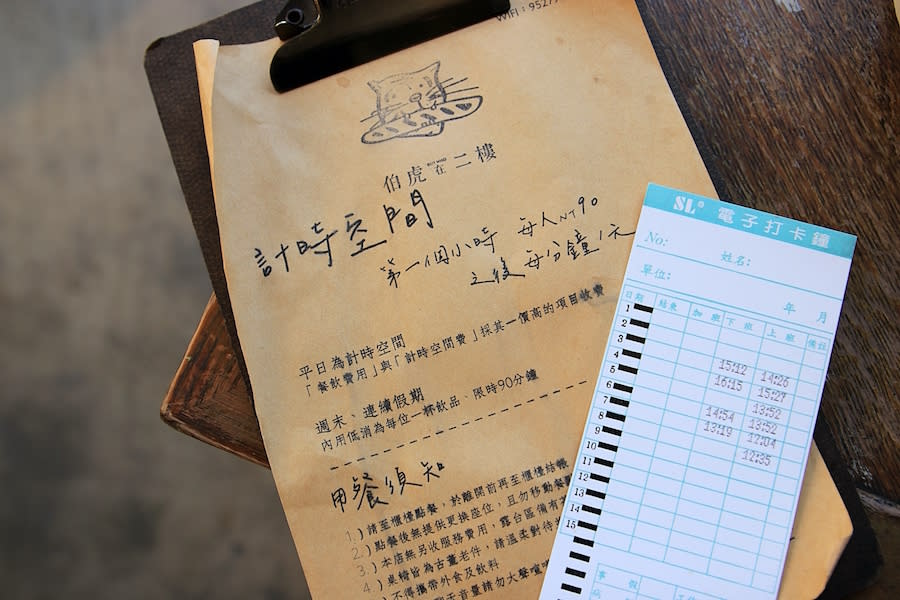 WIFI：9527
伯虎在二樓
計時空間
第一個小時 每人NT90
之後 每分鐘1元
平日為計時空間
「餐飲費用」與「計時空間費」採其一價高的項目收費
週末、連續假期
內用低消為每位一杯飲品、限時90分鐘
用餐須知
1.）請至櫃檯點餐，於離開前再至櫃檯結帳
2.）點餐後無提供更換座位，且勿移動餐
3.）本店無另收服務費用，露台區備有
4.）桌椅皆為古董老件，請溫柔對待
不得攜帶外食及飲料
音量請勿大聲喧
SL® 電子打卡鐘
No: 姓名:
單位: 年 月
日期 結束 加班 下班 上班 備註
1
2
3
4 15:12 14:26
5 16:15 15:27
6 13:52
7 14:54 13:52
8 13:19 17:04
9 12:35
10
11
12
13
14
15
事假